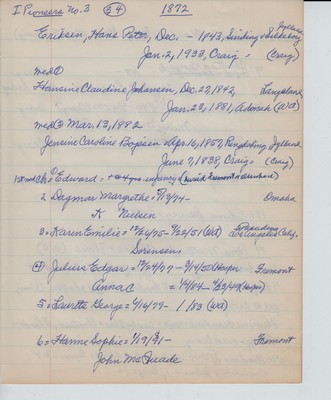 I Pioneers No. 3 (54) 1872
Eriksen, Hans Peter, Dec. - 1843, Sending Silkeborg Jylland
Jan. 2, 1933, Craig = (Craig)
med ①
Hansine Claudine Johansen, Dec. 22, 1842, Langeland
Jan. 29, 1881, Admah (Wd)
med ② Mar. 13, 1882
Jensine Caroline Bopsen = Apr. 16, 1857, Ringkobing, Jylland
June 7, 1938, Craig = (Craig)
1st med Ch. ① Edward = infancy (buried Fremont
2. Dagmar Margrethe = Omaha
K Nielsen
3 = Karen Emilie = 12/24/75 - 7/22/51 (Wd) Pasadena Los Angeles Calif.
Sorensen
④ Julius Edgar = - 9/14/50 (Harper Fremont
Anna C = (Harper)
5 = Lauritz George = 6/16/79 - 1/83 (Wd)
6 = Hanne Sophie = 1/19/81 - Fremont
John McQuade